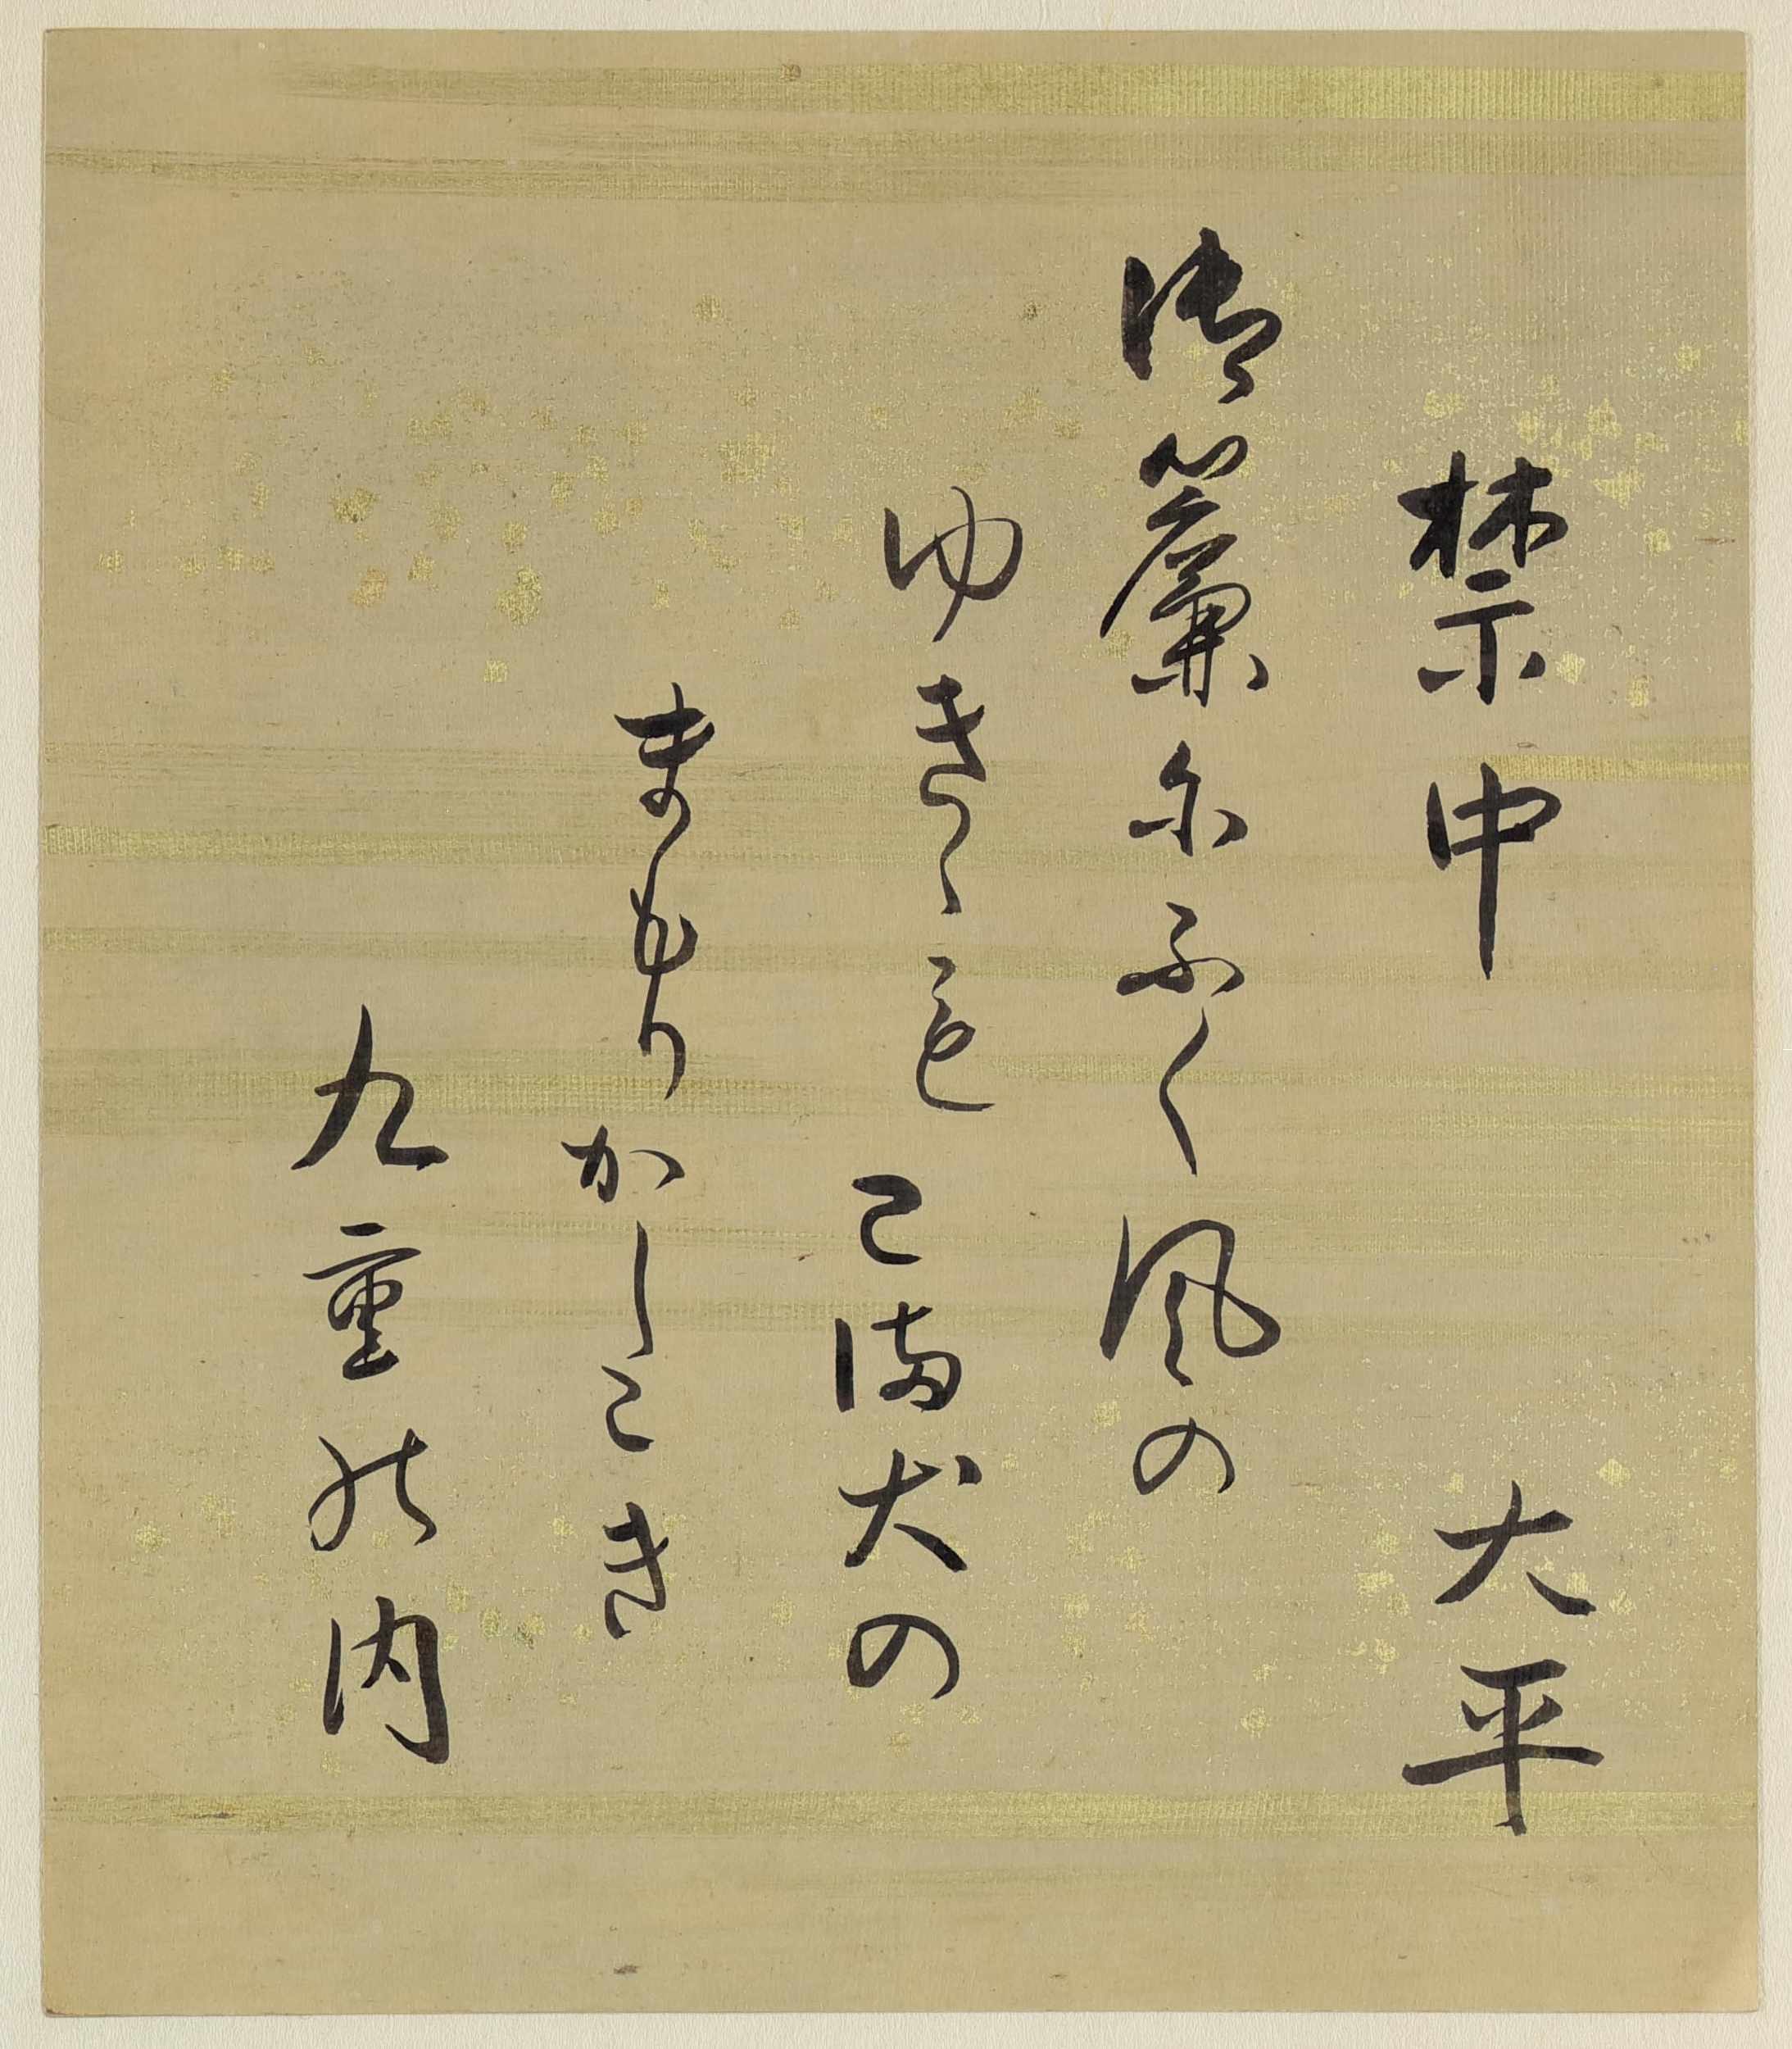 禁中 大平
御簾にふく風の
ゆきゝも こま犬の
まもりかしこき
九重の内